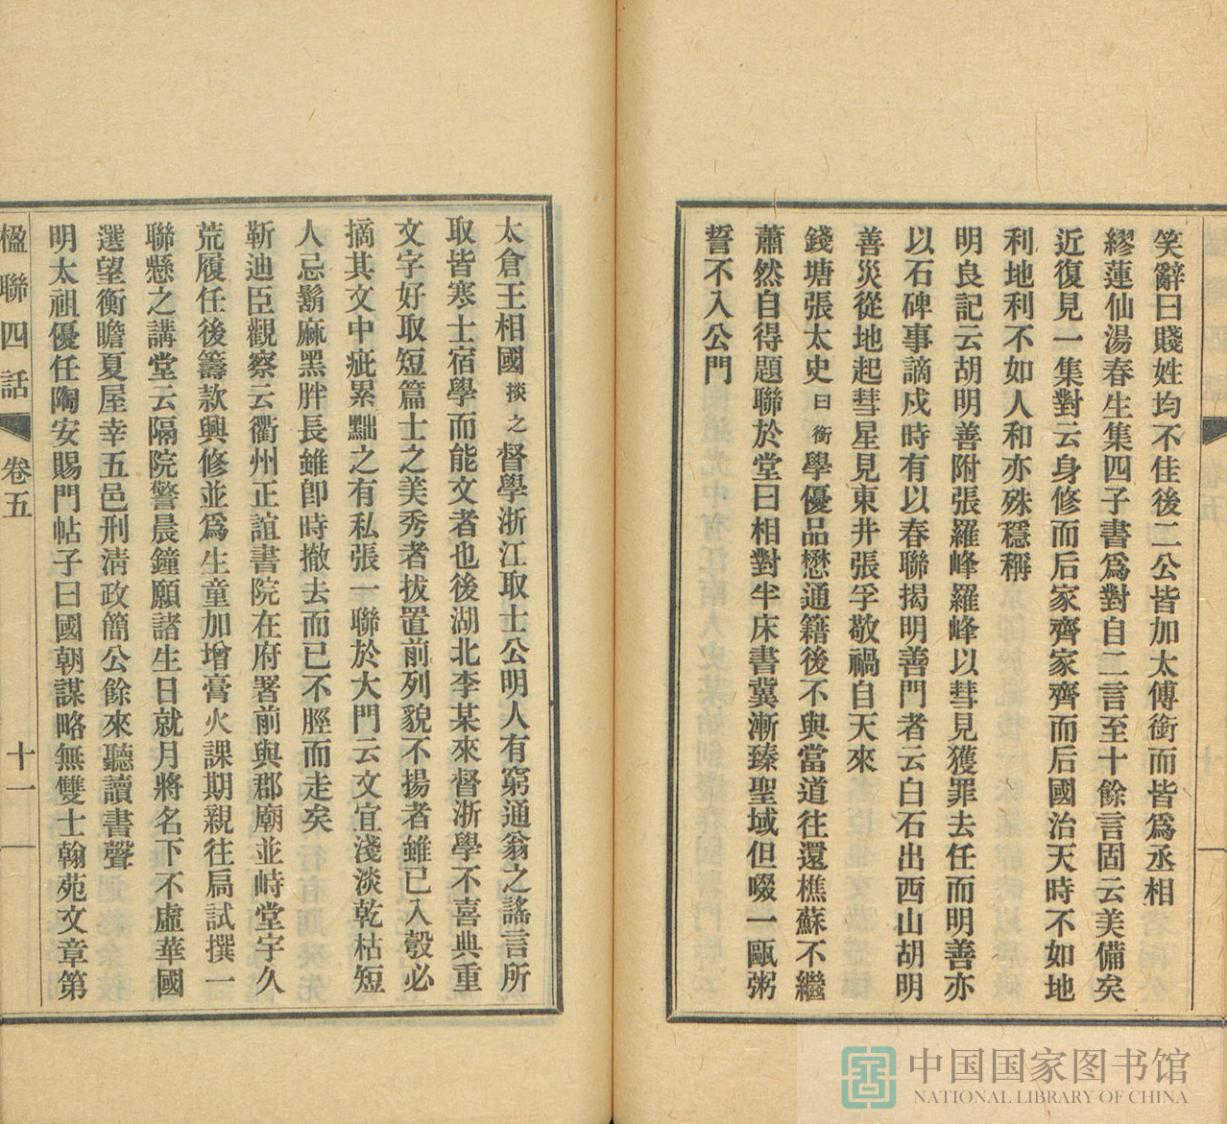 笑辭曰賤姓均不佳後二公皆加太傅銜而皆爲丞相
繆蓮仙湯春生集四子書爲對自二言至十餘言固云美備矣
近復見一集對云身修而后家齊家齊而后國治天時不如地
利地利不如人和亦殊穩稱
明良記云胡明善附張羅峰羅峰以彗見獲罪去任而明善亦
以石碑事謫戍時有以春聯揭明善門者云白石出西山胡明
善災從地起彗星見東井張孚敬禍自天來
錢塘張太史曰銜學優品懋通籍後不與當道往還樵蘇不繼
蕭然自得題聯於堂曰相對半床書冀漸臻聖域但啜一甌粥
誓不入公門
太倉王相國掞之督學浙江取士公明人有窮通翁之謠言所
取皆寒士宿學而能文者也後湖北李某來督浙學不喜典重
文字好取短篇士之美秀者拔置前列貌不揚者雖已入彀必
摘其文中疵累黜之有私張一聯於大門云文宜淺淡乾枯短
人忌鬍麻黑胖長雖卽時撤去而已不脛而走矣
靳迪臣觀察云衢州正誼書院在府署前與郡廟並峙堂宇久
荒履任後籌款興修並爲生童加增膏火課期親往扃試撰一
聯懸之講堂云隔院警晨鐘願諸生日就月將名下不虛華國
選望衡瞻夏屋幸五邑刑淸政簡公餘來聽讀書聲
明太祖優任陶安賜門帖子曰國朝謀略無雙士翰苑文章第
楹聯四話 卷五 十一
中国国家图书馆
NATIONAL LIBRARY OF CHINA